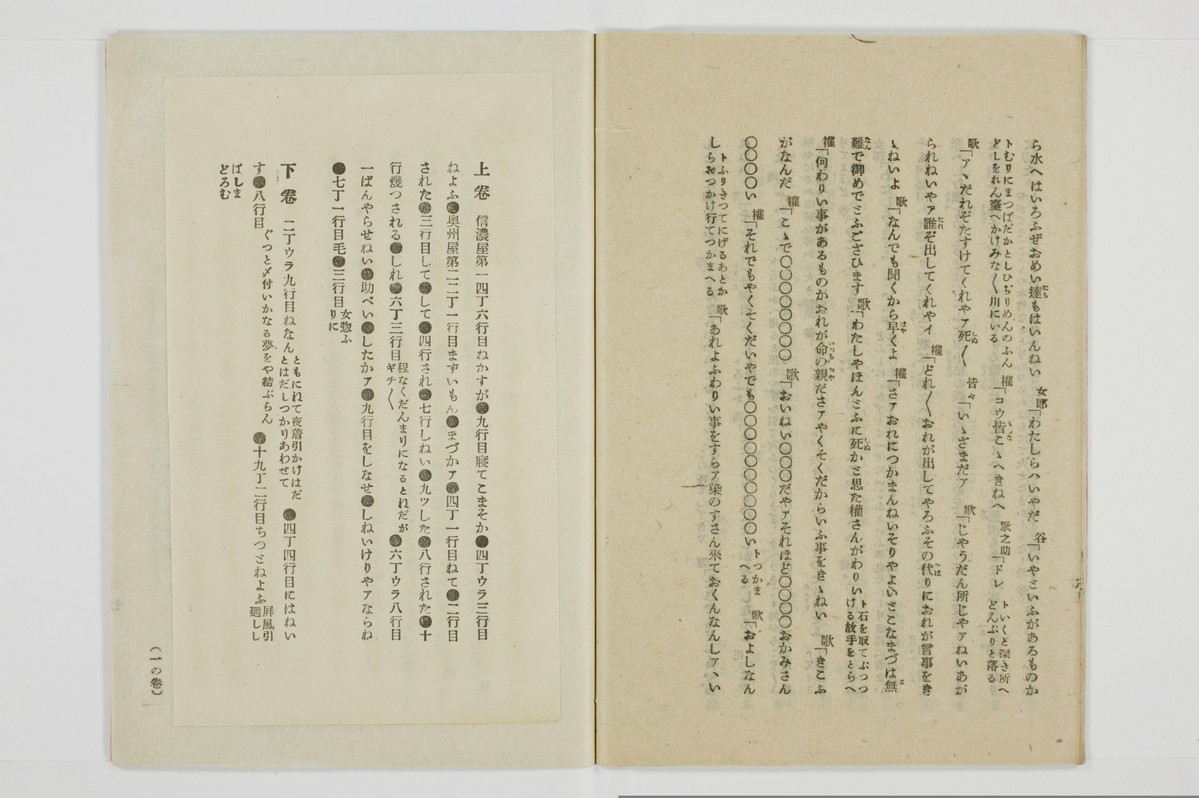 ら水へはいろふぜおめい達もはいんねい 女郎「わたしらハいやだ 谷「いやといふがあるものか
トむりにまつぱだかとしひぢりめんのふん
どしをれん臺へかけみな〱川にいる 權「コウ皆こゝへきねへ 歌之助「ドレ トいくと深き所へ
どんぶりと落る
歌「アヽだれぞたすけてくれやァ死〱 皆々「いゝさまだァ 歌「じやうだん所じやァねいあが
られねいやァ誰ぞ出してくれやィ 權「どれ〱おれが出してやろふその代りにおれが言事をき
ゝねいよ 歌「なんでも聞くから早くよ 權「さァおれにつかまんねいそりやよいとこなまづは無
難で御めでとふござひます 歌「わたしやほんとふに死かと思た權さんがわりい ト石を取てぶつつ
ける故手をとらへ
權「何わりい事があるものかおれが命の親ださァやくそくだからいふ事をきゝねい 歌「きこふ
がなんだ 權「こゝで〇〇〇〇〇〇〇 歌「おいねい〇〇〇だやァそれほど〇〇〇〇おかみさん
〇〇〇〇い 權「それでもやくそくだいやでも〇〇〇〇〇〇〇〇〇い トつかま
へる 歌「およしなん
し トふりきつてにげるあとか
らおつかけ行てつかまへる 歌「あれよふわりい事をすらァ染のすさん來ておくんなんしァヽい
上卷 信濃屋第一四丁六行目ねかすが●九行目寢てこまそか●四丁ウラ三行目
ねよふ●奧州屋第二二丁一行目ますいもん●まづかァ●四丁一行目ねて●二行目
された●三行目して●して●四行され●七行しねい●九ッした●八行された●十
行幾つされる●しれ●六丁三行目 程なくだんまりになるとれだが
ギチ〱 ●六丁ウラ八行目
一ばんやらせねい●助べい●したかァ●九行目をしなせ●しねいけりやァならね
●七丁一行目毛●三行目 女惣ふ
りに
下卷 二丁ウラ九行目ねなん ともにれて夜着引かけはだ
とはだしつかりあわせて ●四丁四行目にはねい
す●八行目 ぐつと〆付いかなる夢をや結ぶらん ●十九丁二行目ちつとねよふ 屏風引
廻しし
ばしま
どろむ
(一の卷)